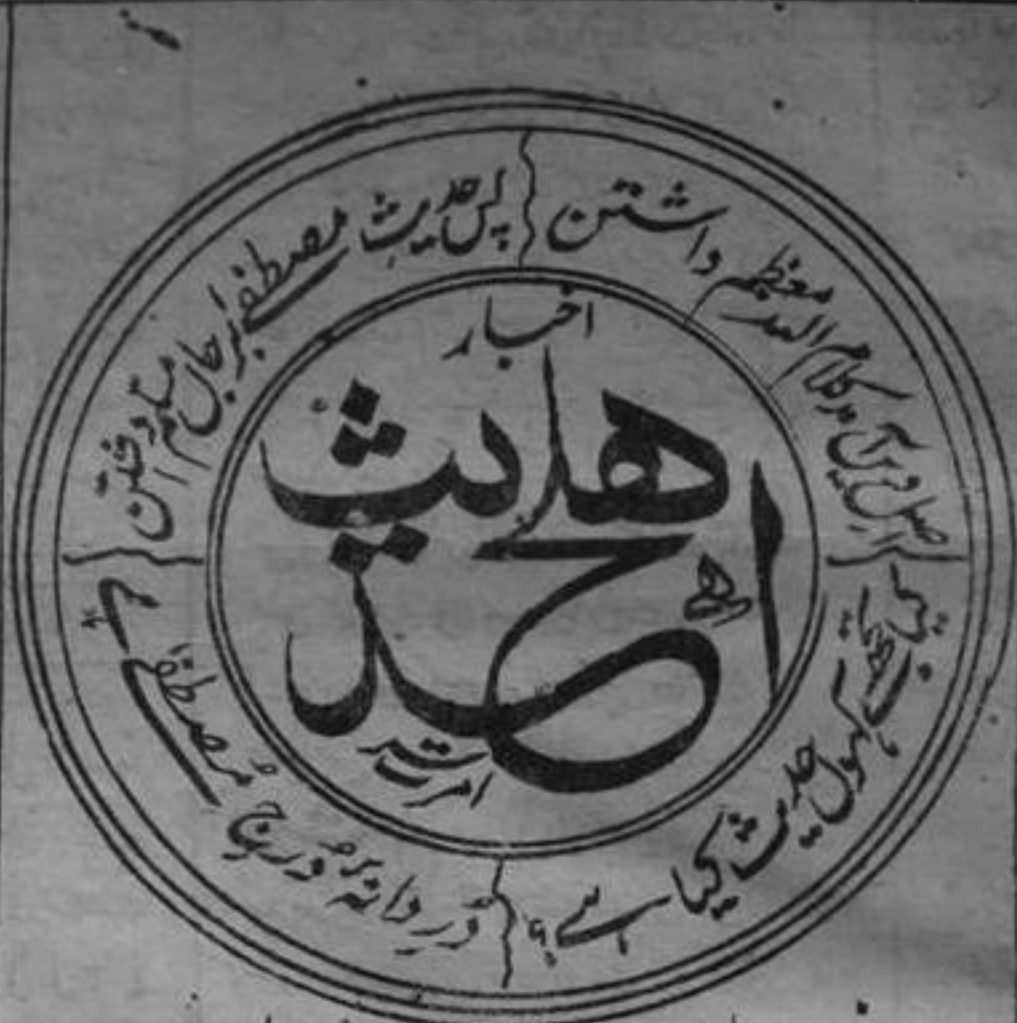 اخبار
اهلحدیث
امرتسر
اصل دین آمد کلام الله معظم داشتن
پس حدیث مصطفےٰ بر جاں مسلم داشتن
میں تجھسے کہوں حدیث کیا ہے؟
دُرِ دانهٔ دُرجِ مُصطفےٰ ہے